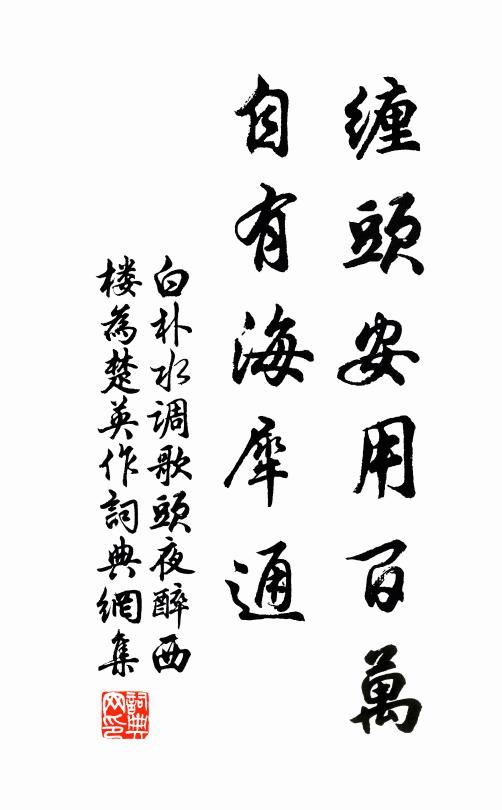 缠頭安用百萬
自有海犀通
白朴水调歌頭夜醉西
楼為楚英作詞典網集
詞典
网印